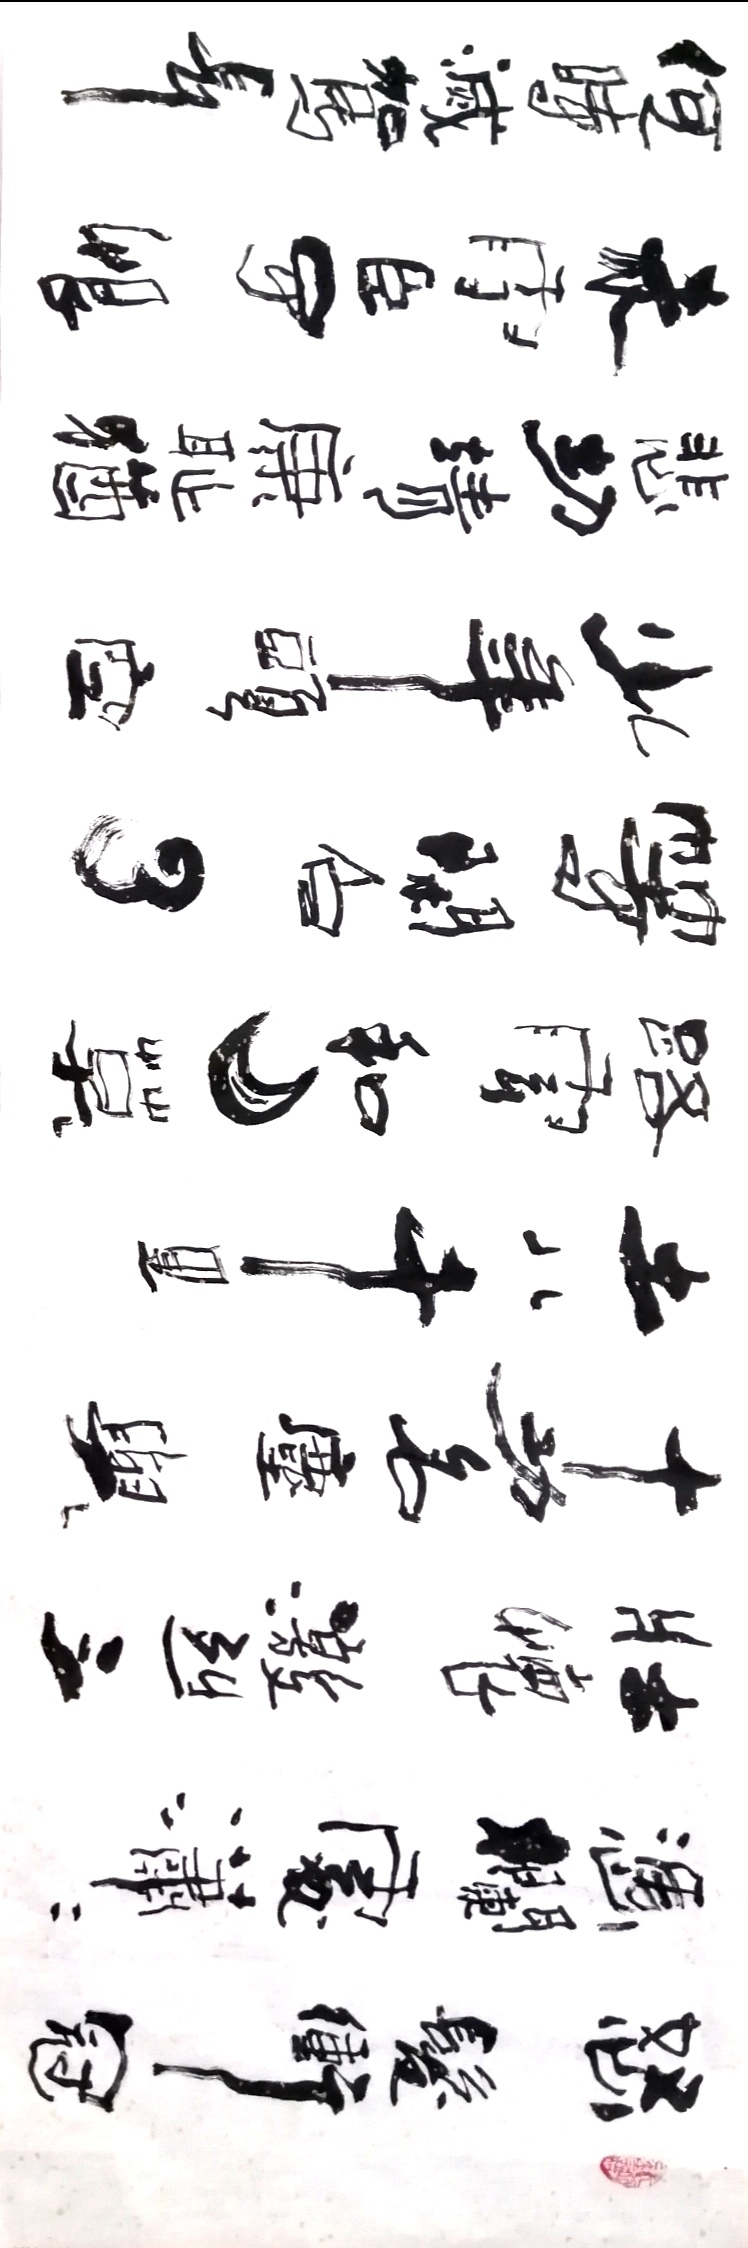 怒髮衝冠
憑闌處瀟
壯懷激烈三
十功名塵與
土八千里
路雲和月莫
等閒白了
少年頭空
悲切靖康恥猶
未雪臣子恨
何時滅駕長